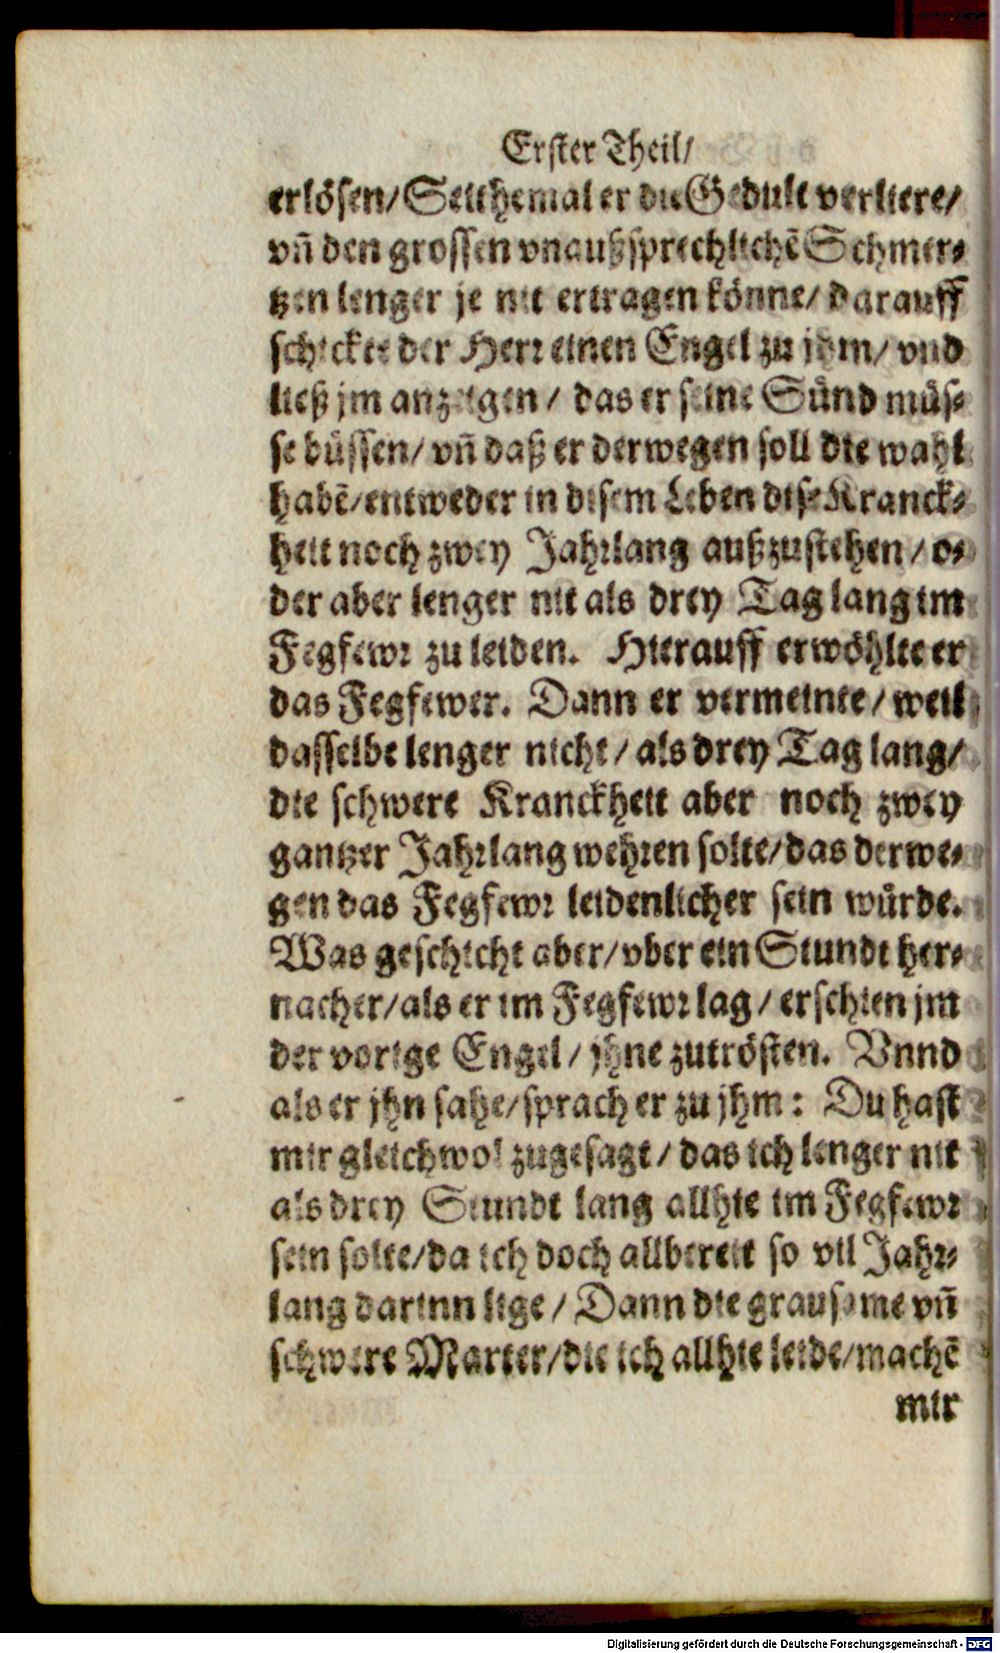 Erster Theil/
erlösen/ Seithemal er die Gedult verliere/
vñ den grossen vnaußsprechlichē Schmer⸗
tzen lenger je nit ertragen könne/ darauff
schicket der Herr einen Engel zu jhm/ vnd
ließ jm anzeigen / das er seine Sünd müs⸗
se büssen/ vñ daß er derwegen soll die wahl
habē/ entweder in disem Leben dise Kranck⸗
heit noch zwey Jahrlang außzustehen / o⸗
der aber lenger nit als drey Tag lang im
Fegfewr zu leiden. Hierauff erwöhlte er
das Fegfewer. Dann er vermeinte / weil
dasselbe lenger nicht / als drey Tag lang/
die schwere Kranckheit aber noch zwey
gantzer Jahrlang wehren solte/ das derwe⸗
gen das Fegfewr leidenlicher sein würde.
Was geschicht aber/ vber ein Stundt her⸗
nacher/ als er im Fegfewr lag / erschien jm
der vorige Engel / jhne zutrösten. Vnnd
als er jhn sahe/ sprach er zu jhm: Du hast
mir gleichwol zugesagt / das ich lenger nit
als drey Stundt lang allhie im Fegfewr
sein solte/ da ich doch allbereit so vil Jahr⸗
lang darinn lige / Dann die grausame vñ
schwere Marter/ die ich allhie leide/ machē
mir
Digitalisierung gefördert durch die Deutsche Forschungsgemeinschaft - DFG